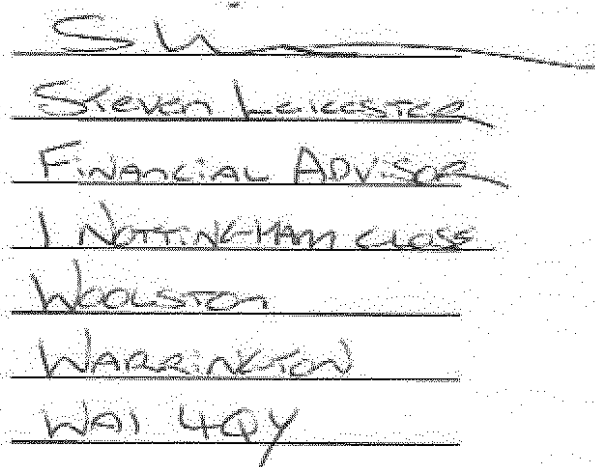 Steven Leicester
Financial Advisor
1 Nottingham Close
Woolston
Warrington
WA1 4QY